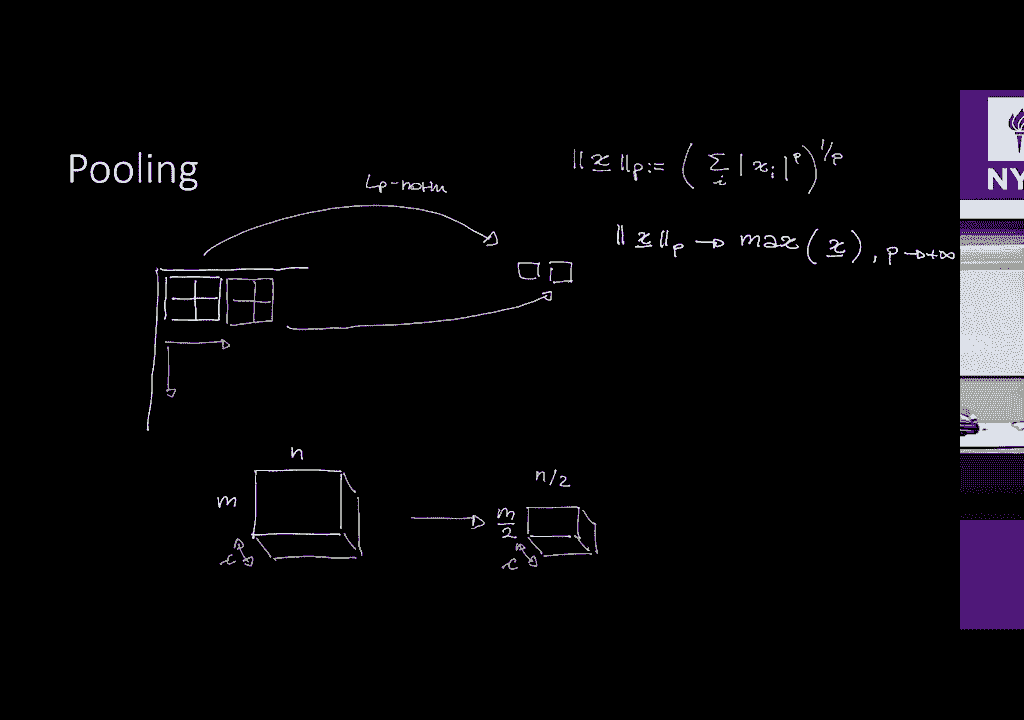 Pooling
Lp-norm
‖x‖p := (∑i |xi|^p)^1/p
‖x‖p → max(x), p → +∞
NY
n
m
c
n/2
m/2
c